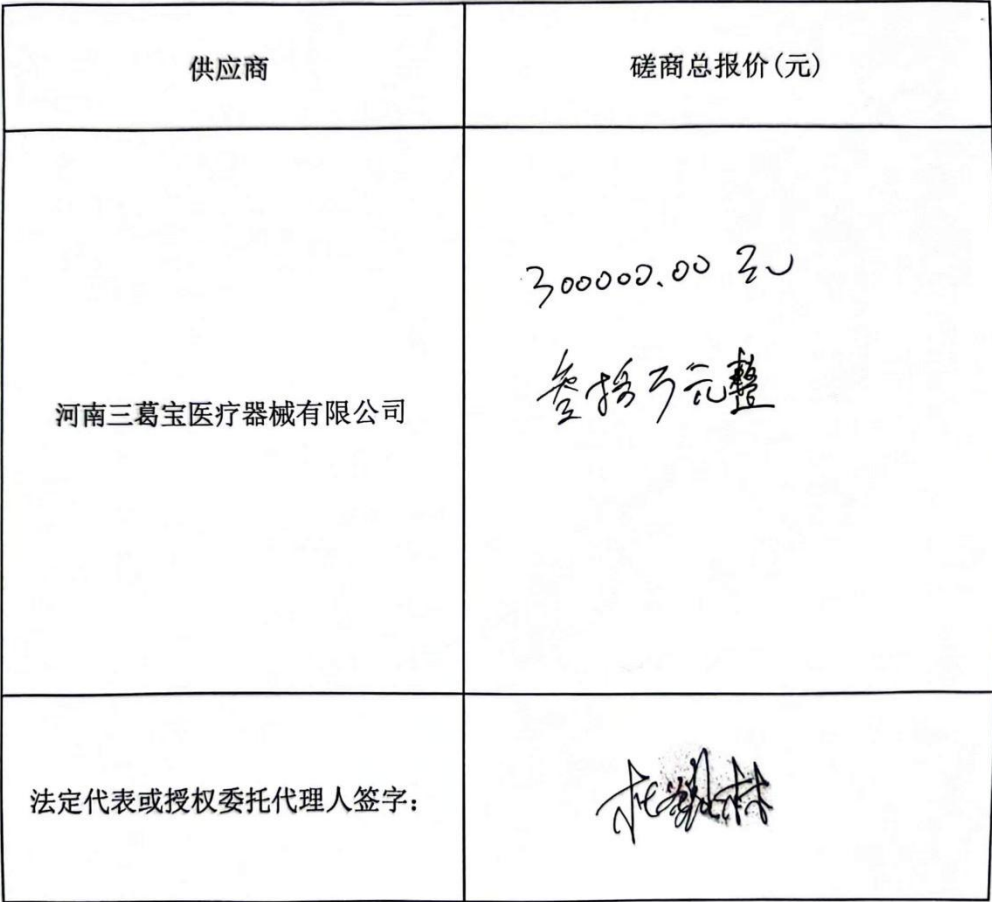 供应商
磋商总报价(元)
河南三葛宝医疗器械有限公司
300000.00 元
叁拾万元整
法定代表或授权委托代理人签字：